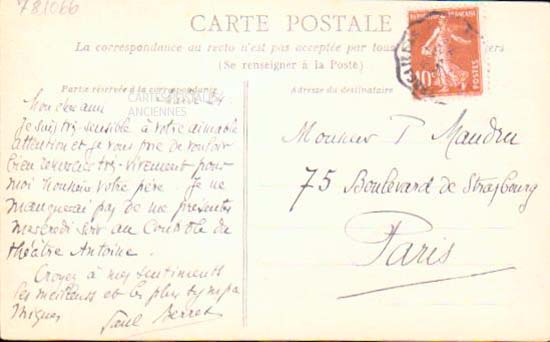 781066
CARTE POSTALE
La correspondance au recto n'est pas acceptée par tous
(Se renseigner à la Poste)
Partie réservée à la correspondance
Adresse du destinataire
CARTES POSTALES
ANCIENNES
10c
POSTES
Mon cher ami
Je suis très sensible à votre aimable
attention et je vous prie de vouloir
bien remercier très vivement pour
moi Monsieur votre père. Je ne
manquerai pas de me présenter
mercredi soir au Contrôle du
théâtre Antoine.
Croyez à mes sentiments
les meilleurs et les plus sympa
thiques
Paul Berret
Monsieur P Maudru
75 Boulevard de Strasbourg
Paris